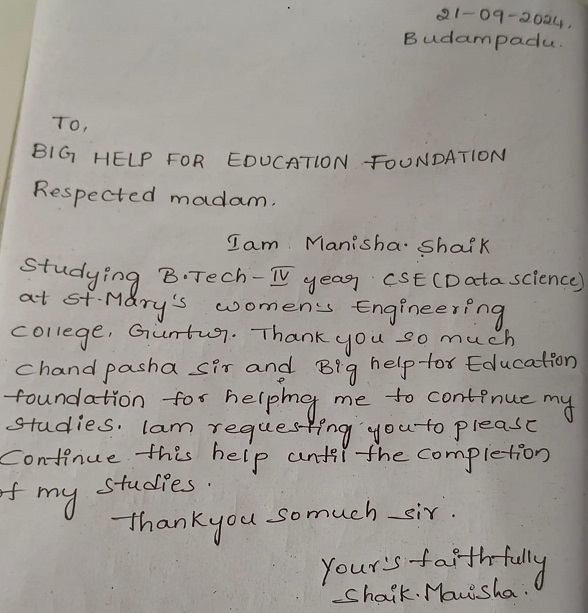 21-09-2024.
Budampadu.
To,
BIG HELP FOR EDUCATION FOUNDATION
Respected madam.
Iam Manisha. Shaik
Studying B.Tech-IV year CSE(Data science)
at St.Mary's women's Engineering
college, Guntur. Thank you so much
chand pasha sir and Big help for Education
foundation for helping me to continue my
studies. Iam requesting you to please
continue this help until the completion
of my studies.
Thankyou somuch sir.
Your's faithfully
Shaik. Manisha.